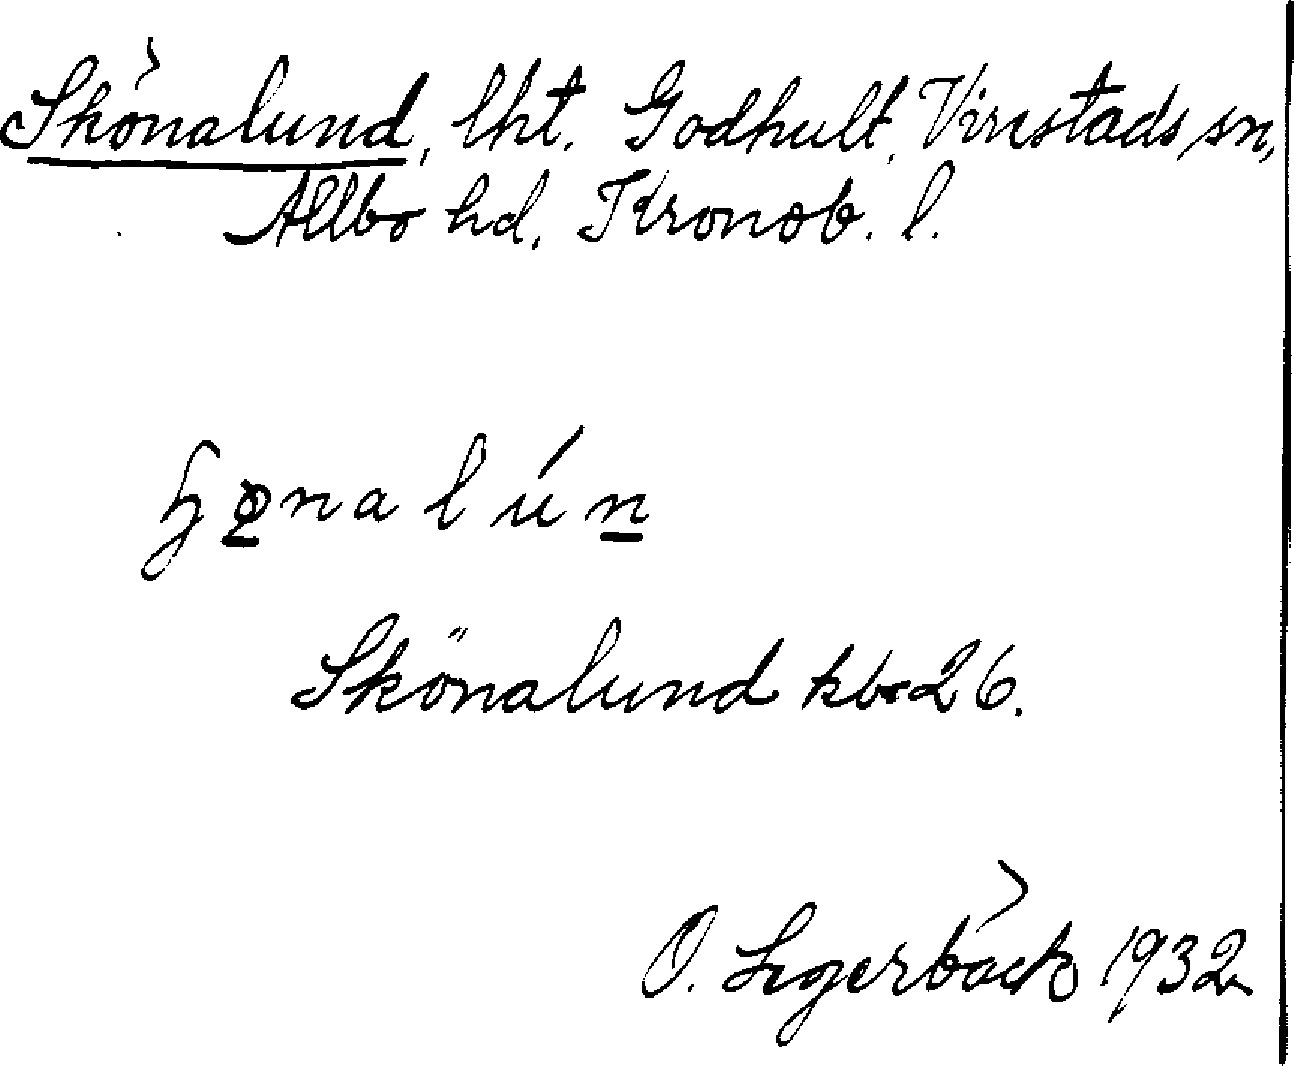 Skönalund, lht. Godhult, Virestads sn,
Allbo hd. Kronob. l.
ɧønalún
Skönalund kbr 26.
O. Legerbäck 1932